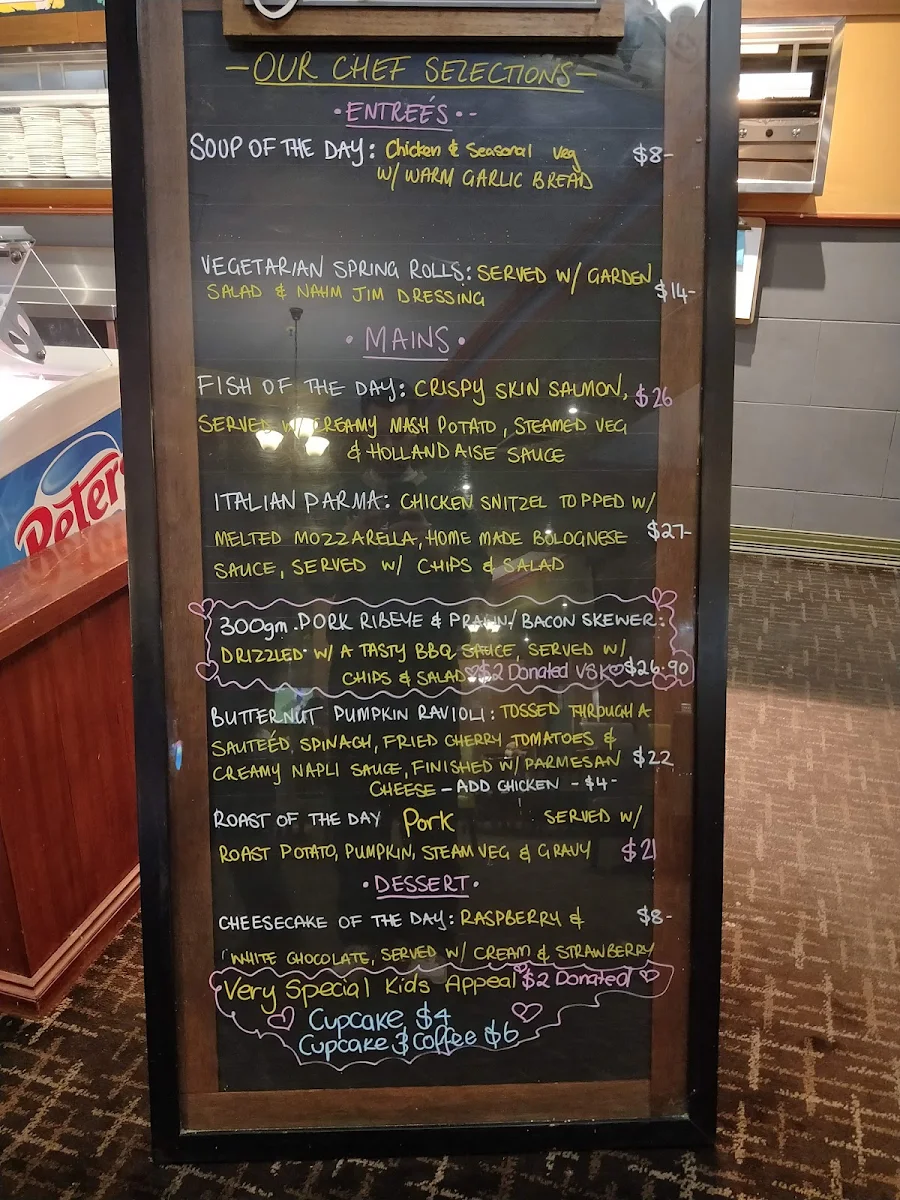 -OUR CHEF SELECTIONS-
·ENTREÉS··
SOUP OF THE DAY: Chicken & Seasonal veg $8-
W/ WARM GARLIC BREAD
VEGETARIAN SPRING ROLLS: SERVED W/ GARDEN
SALAD & NAHM JIM DRESSING $14-
· MAINS ·
FISH OF THE DAY: CRISPY SKIN SALMON, $26
SERVED W/ CREAMY MASH POTATO, STEAMED VEG
& HOLLANDAISE SAUCE
ITALIAN PARMA: CHICKEN SNITZEL TOPPED W/
MELTED MOZZARELLA, HOME MADE BOLOGNESE $27-
SAUCE, SERVED W/ CHIPS & SALAD
300gm. PORK RIBEYE & PRAWN/ BACON SKEWER:
DRIZZLED W/ A TASTY BBQ SAUCE, SERVED W/
CHIPS & SALAD $2 Donated VSK $26.90
BUTTERNUT PUMPKIN RAVIOLI: TOSSED THROUGH A
SAUTEÉD, SPINACH, FRIED CHERRY TOMATOES &
CREAMY NAPLI SAUCE, FINISHED W/ PARMESAN $22
CHEESE - ADD CHICKEN - $4-
ROAST OF THE DAY Pork SERVED W/
ROAST POTATO, PUMPKIN, STEAM VEG & GRAVY $21
·DESSERT·
CHEESECAKE OF THE DAY: RASPBERRY & $8-
WHITE CHOCOLATE, SERVED W/ CREAM & STRAWBERRY
Very Special Kids Appeal $2 Donated
Cupcake $4
Cupcake & Coffee $6
Peters